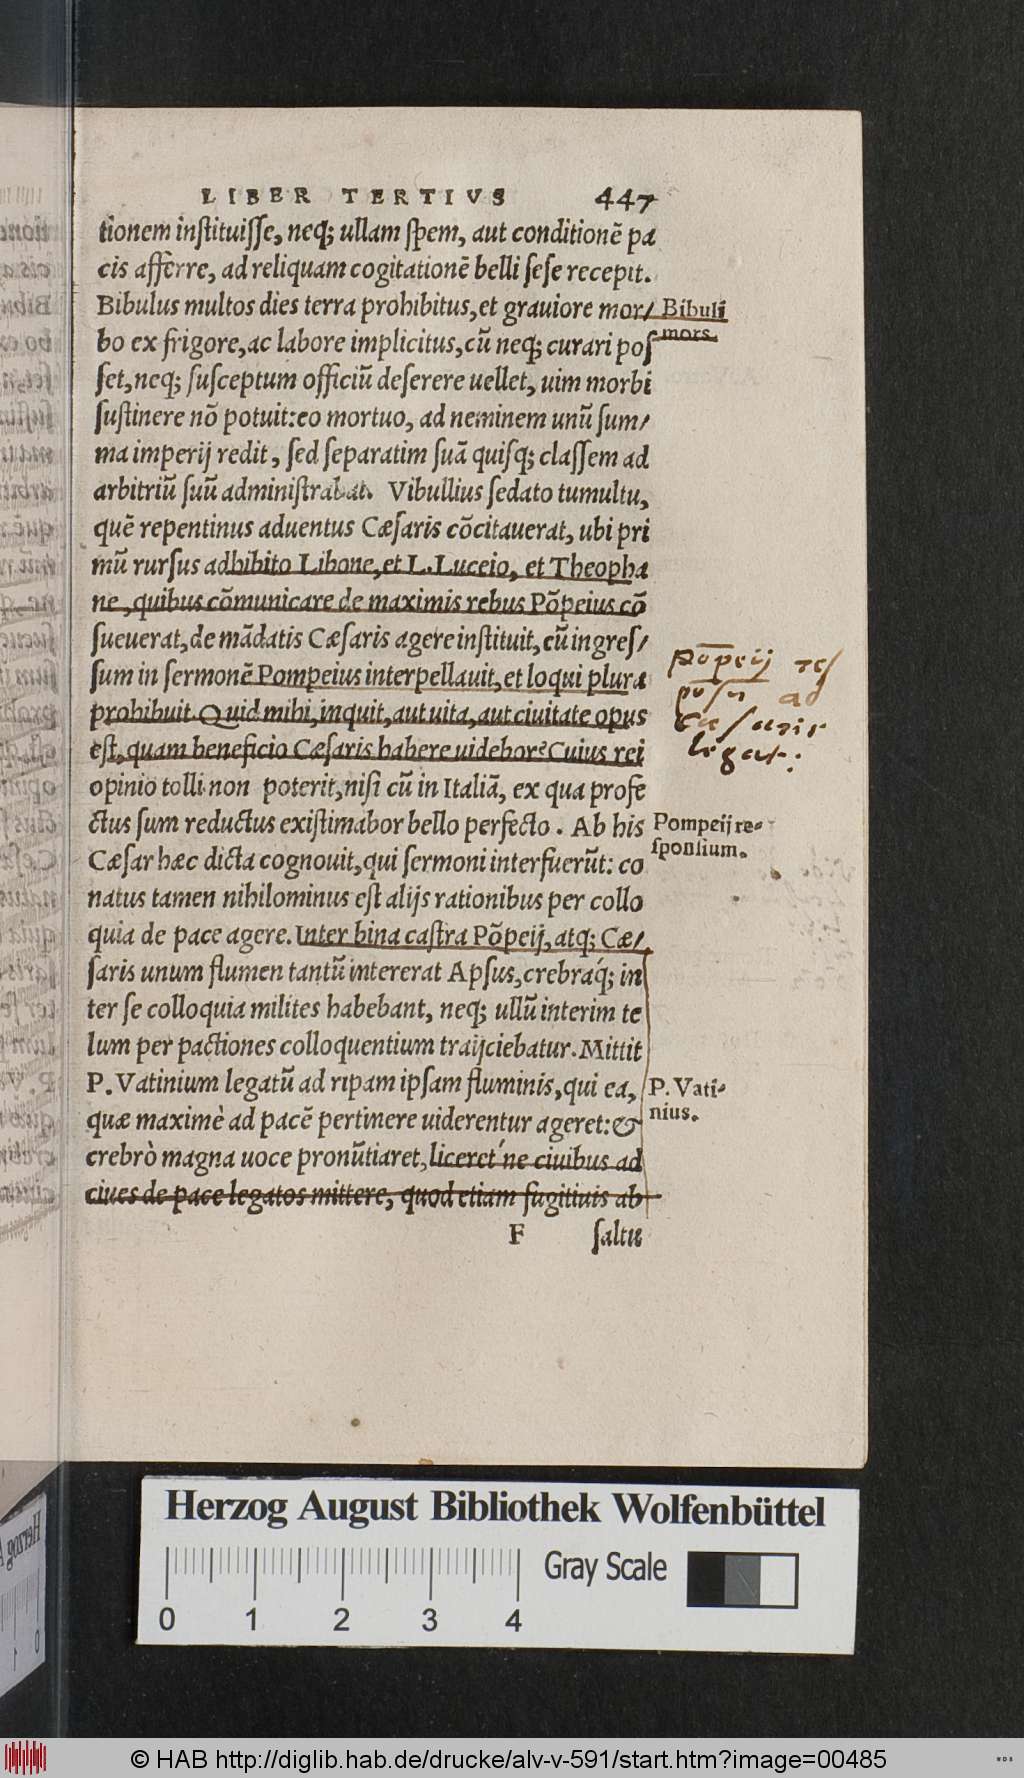 LIBER TERTIVS 447
tionem inſtituiſſe, neq; ullam ſpem, aut conditionē pa
cis afferre, ad reliquam cogitationē belli ſeſe recepit.
Bibulus multos dies terra prohibitus, et grauiore mor/
Bibuli
mors.
bo ex frigore, ac labore implicitus, cū neq; curari poſ
ſet, neq; ſuſceptum officiū deſerere uellet, uim morbi
ſuſtinere nō potuit: eo mortuo, ad neminem unū ſum/
ma imperij redit, ſed ſeparatim ſuā quiſq; claſſem ad
arbitriū ſuū adminiſtrabat. Vibullius ſedato tumultu,
quē repentinus aduentus Cæſaris cōcitauerat, ubi pri
mū rurſus adhibito Libone, et L. Luceio, et Theopha
ne, quibus cōmunicare de maximis rebus Pōpeius cō
ſueuerat, de mādatis Cæſaris agere inſtituit, cū ingreſ/
ſum in ſermonē Pompeius interpellauit, et loqui plura
prohibuit. Quid mihi, inquit, aut uita, aut ciuitate opus
eſt, quam beneficio Cæſaris habere uidebor? Cuius rei
pōpeij reſ
ad
Cæsaris
legat:
opinio tolli non poterit, niſi cū in Italiā, ex qua profe
ctus ſum reductus exiſtimabor bello perfecto. Ab his
Pompeij re-
ſponſium.
Cæſar hæc dicta cognouit, qui ſermoni interfuerūt: co
natus tamen nihilominus eſt alijs rationibus per collo
quia de pace agere. Inter bina caſtra Pōpeij, atq; Cæ/
ſaris unum flumen tantū intererat Apſus, crebraq́; in
ter ſe colloquia milites habebant, neq; ullū interim te
lum per pactiones colloquentium traijciebatur. Mittit
P. Vatinium legatū ad ripam ipſam fluminis, qui ea,
P. Vati-
nius.
quæ maximè ad pacē pertinere uiderentur ageret: &
crebrò magna uoce pronūtiaret, liceret ́ne ciuibus ad
ciues de pace legatos mittere, quod etiam fugitiuis ab
F ſaltu
Herzog August Bibliothek Wolfenbüttel
Gray Scale
0 1 2 3 4
© HAB http://diglib.hab.de/drucke/alv-v-591/start.htm?image=00485